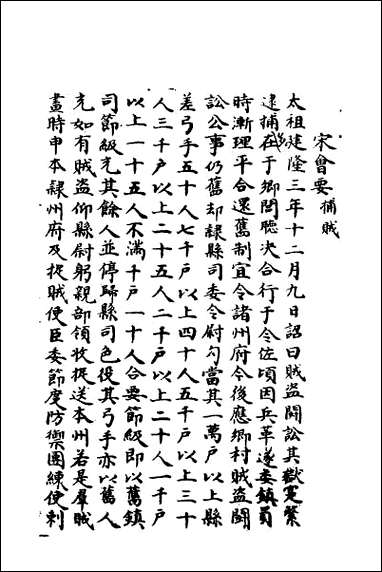 宋會要 捕賊
太祖建隆三年十二月九日詔曰賊盜鬪訟其獄寔繁
逮捕在于鄉閭聽决合行于令佐頃因兵革遂委鎮員
時漸理平合還舊制宜令諸州府今後應鄉村賊盜鬪
訟公事仍舊却隸縣司委令尉勾當其一萬戶以上縣
差弓手五十人七千戶以上四十人五千戶以上三十
人三千戶以上二十五人二千戶以上二十人一千戶
以上一十五人不滿千戶一十人合要節級即以舊鎮
司節級充其餘人並停歸縣司色役其弓手亦以舊人
充如有賊盜仰縣尉躬親部領收捉送本州若是羣賊
畫時申本隸州府及捉賊使臣委節度防禦團練使刺